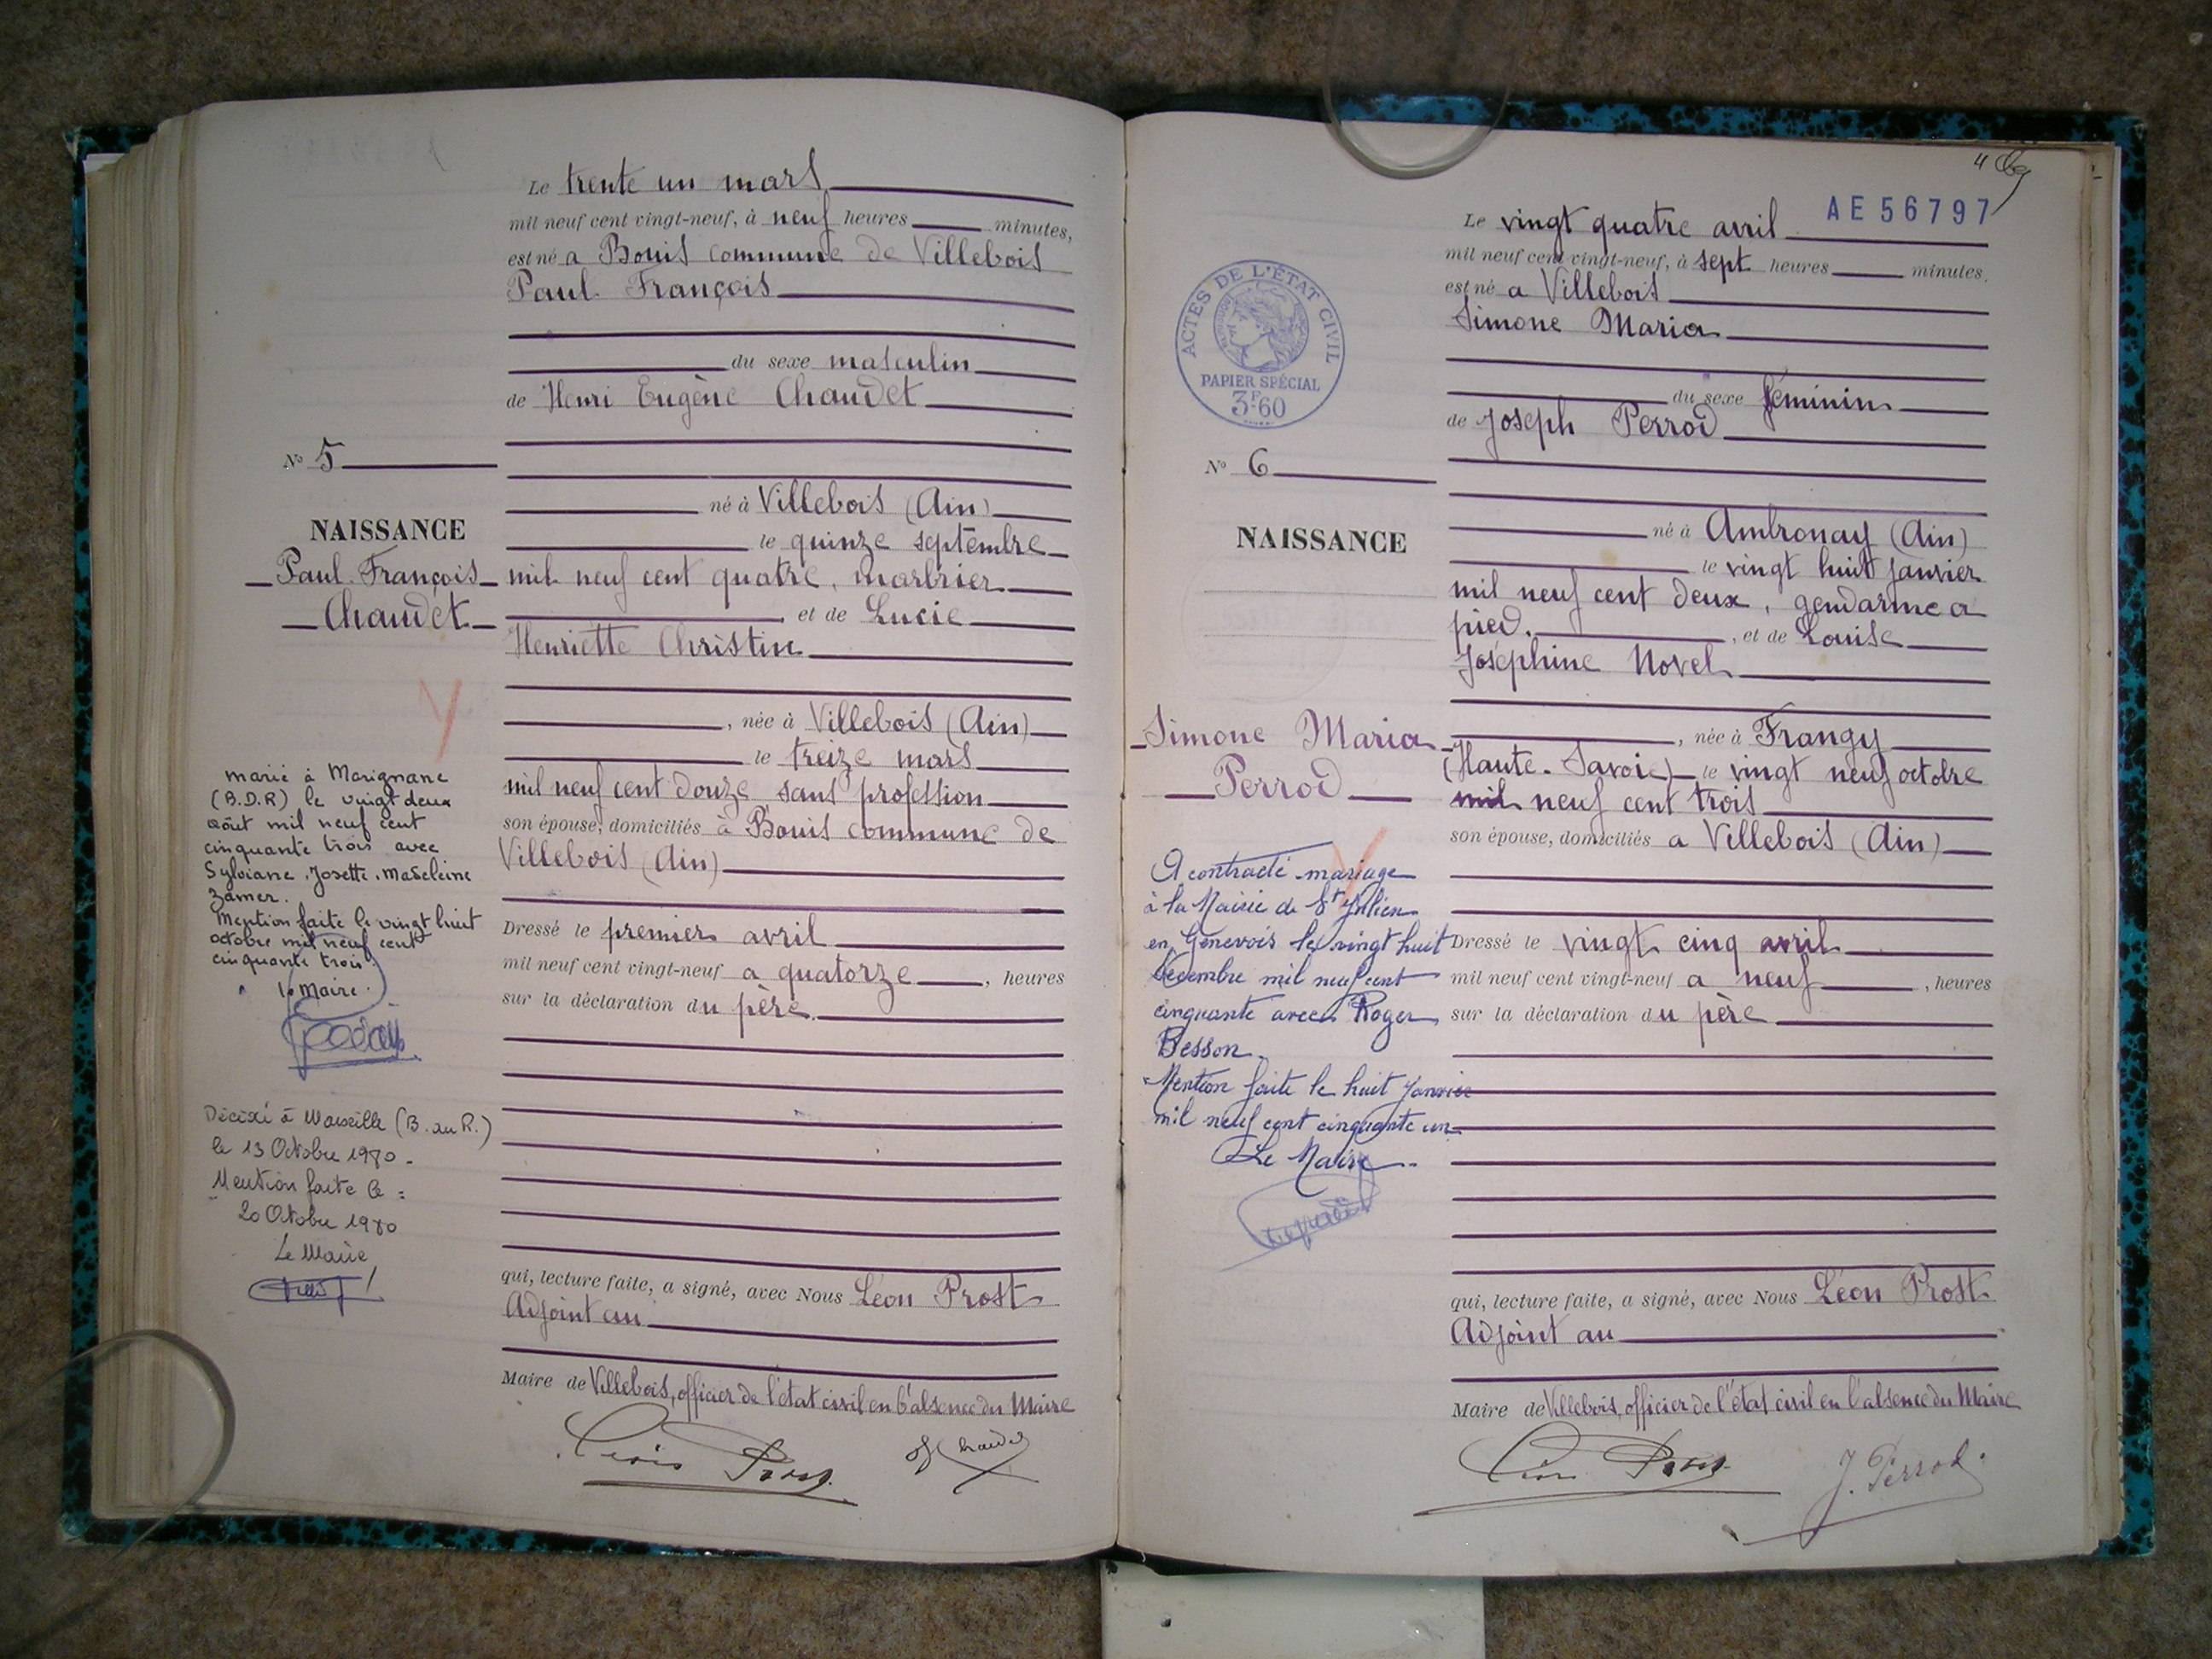 Le trente un mars
mil neuf cent vingt-neuf, à neuf heures minutes,
est né a Bouis commune de Villebois
Paul François
du sexe masculin
de Henri Eugène Chaudet
N° 5
né à Villebois (Ain)
NAISSANCE
le quinze septembre
Paul François
mil neuf cent quatre, marbrier
Chaudet
et de Lucie
Henriette Christin
, née à Villebois (Ain)
le treize mars
mil neuf cent douze sans profession
son épouse, domiciliés à Bouis commune de
Villebois (Ain)
marié à Marignane
(B.D.R) le vingt deux
août mil neuf cent
cinquante trois avec
Sylviane, Josette, Madeleine
Zamer.
Mention faite le vingt huit
octobre mil neuf cent
cinquante trois.
le Maire.
Dressé le premier avril
mil neuf cent vingt-neuf a quatorze , heures
sur la déclaration du père.
Décédé à Marseille (B. du R.)
le 13 Octobre 1980.
Mention faite le :
20 Octobre 1980
Le Maire
qui, lecture faite, a signé, avec Nous Léon Prost
Adjoint au
Maire de Villebois, officier de l'état civil en l'absence du Maire
Léon Prost
H Chaudet
AE56797
Le vingt quatre avril
mil neuf cent vingt-neuf, à sept heures minutes.
est né a Villebois
Simone Maria
ACTES DE L'ÉTAT CIVIL
PAPIER SPÉCIAL
3F60
du sexe féminin
de Joseph Perrod
N° 6
né à Ambronay (Ain)
NAISSANCE
le vingt huit janvier
mil neuf cent deux, gendarme a
pied. , et de Louise
Joséphine Novel
Simone Maria
Perrod
, née à Frangy
(Haute-Savoie) le vingt neuf octobre
mil neuf cent trois
son épouse, domiciliés a Villebois (Ain)
A contracté mariage
à la Mairie de St Julien
en Genevois le vingt huit
décembre mil neuf cent
cinquante avec Roger
Besson.
Mention faite le huit Janvier
mil neuf cent cinquante un
Le Maire
Dressé le vingt cinq avril
mil neuf cent vingt-neuf a neuf , heures
sur la déclaration du père
qui, lecture faite, a signé, avec Nous Léon Prost
Adjoint au
Maire de Villebois, officier de l'état civil en l'absence du Maire
Léon Prost
J. Perrod.